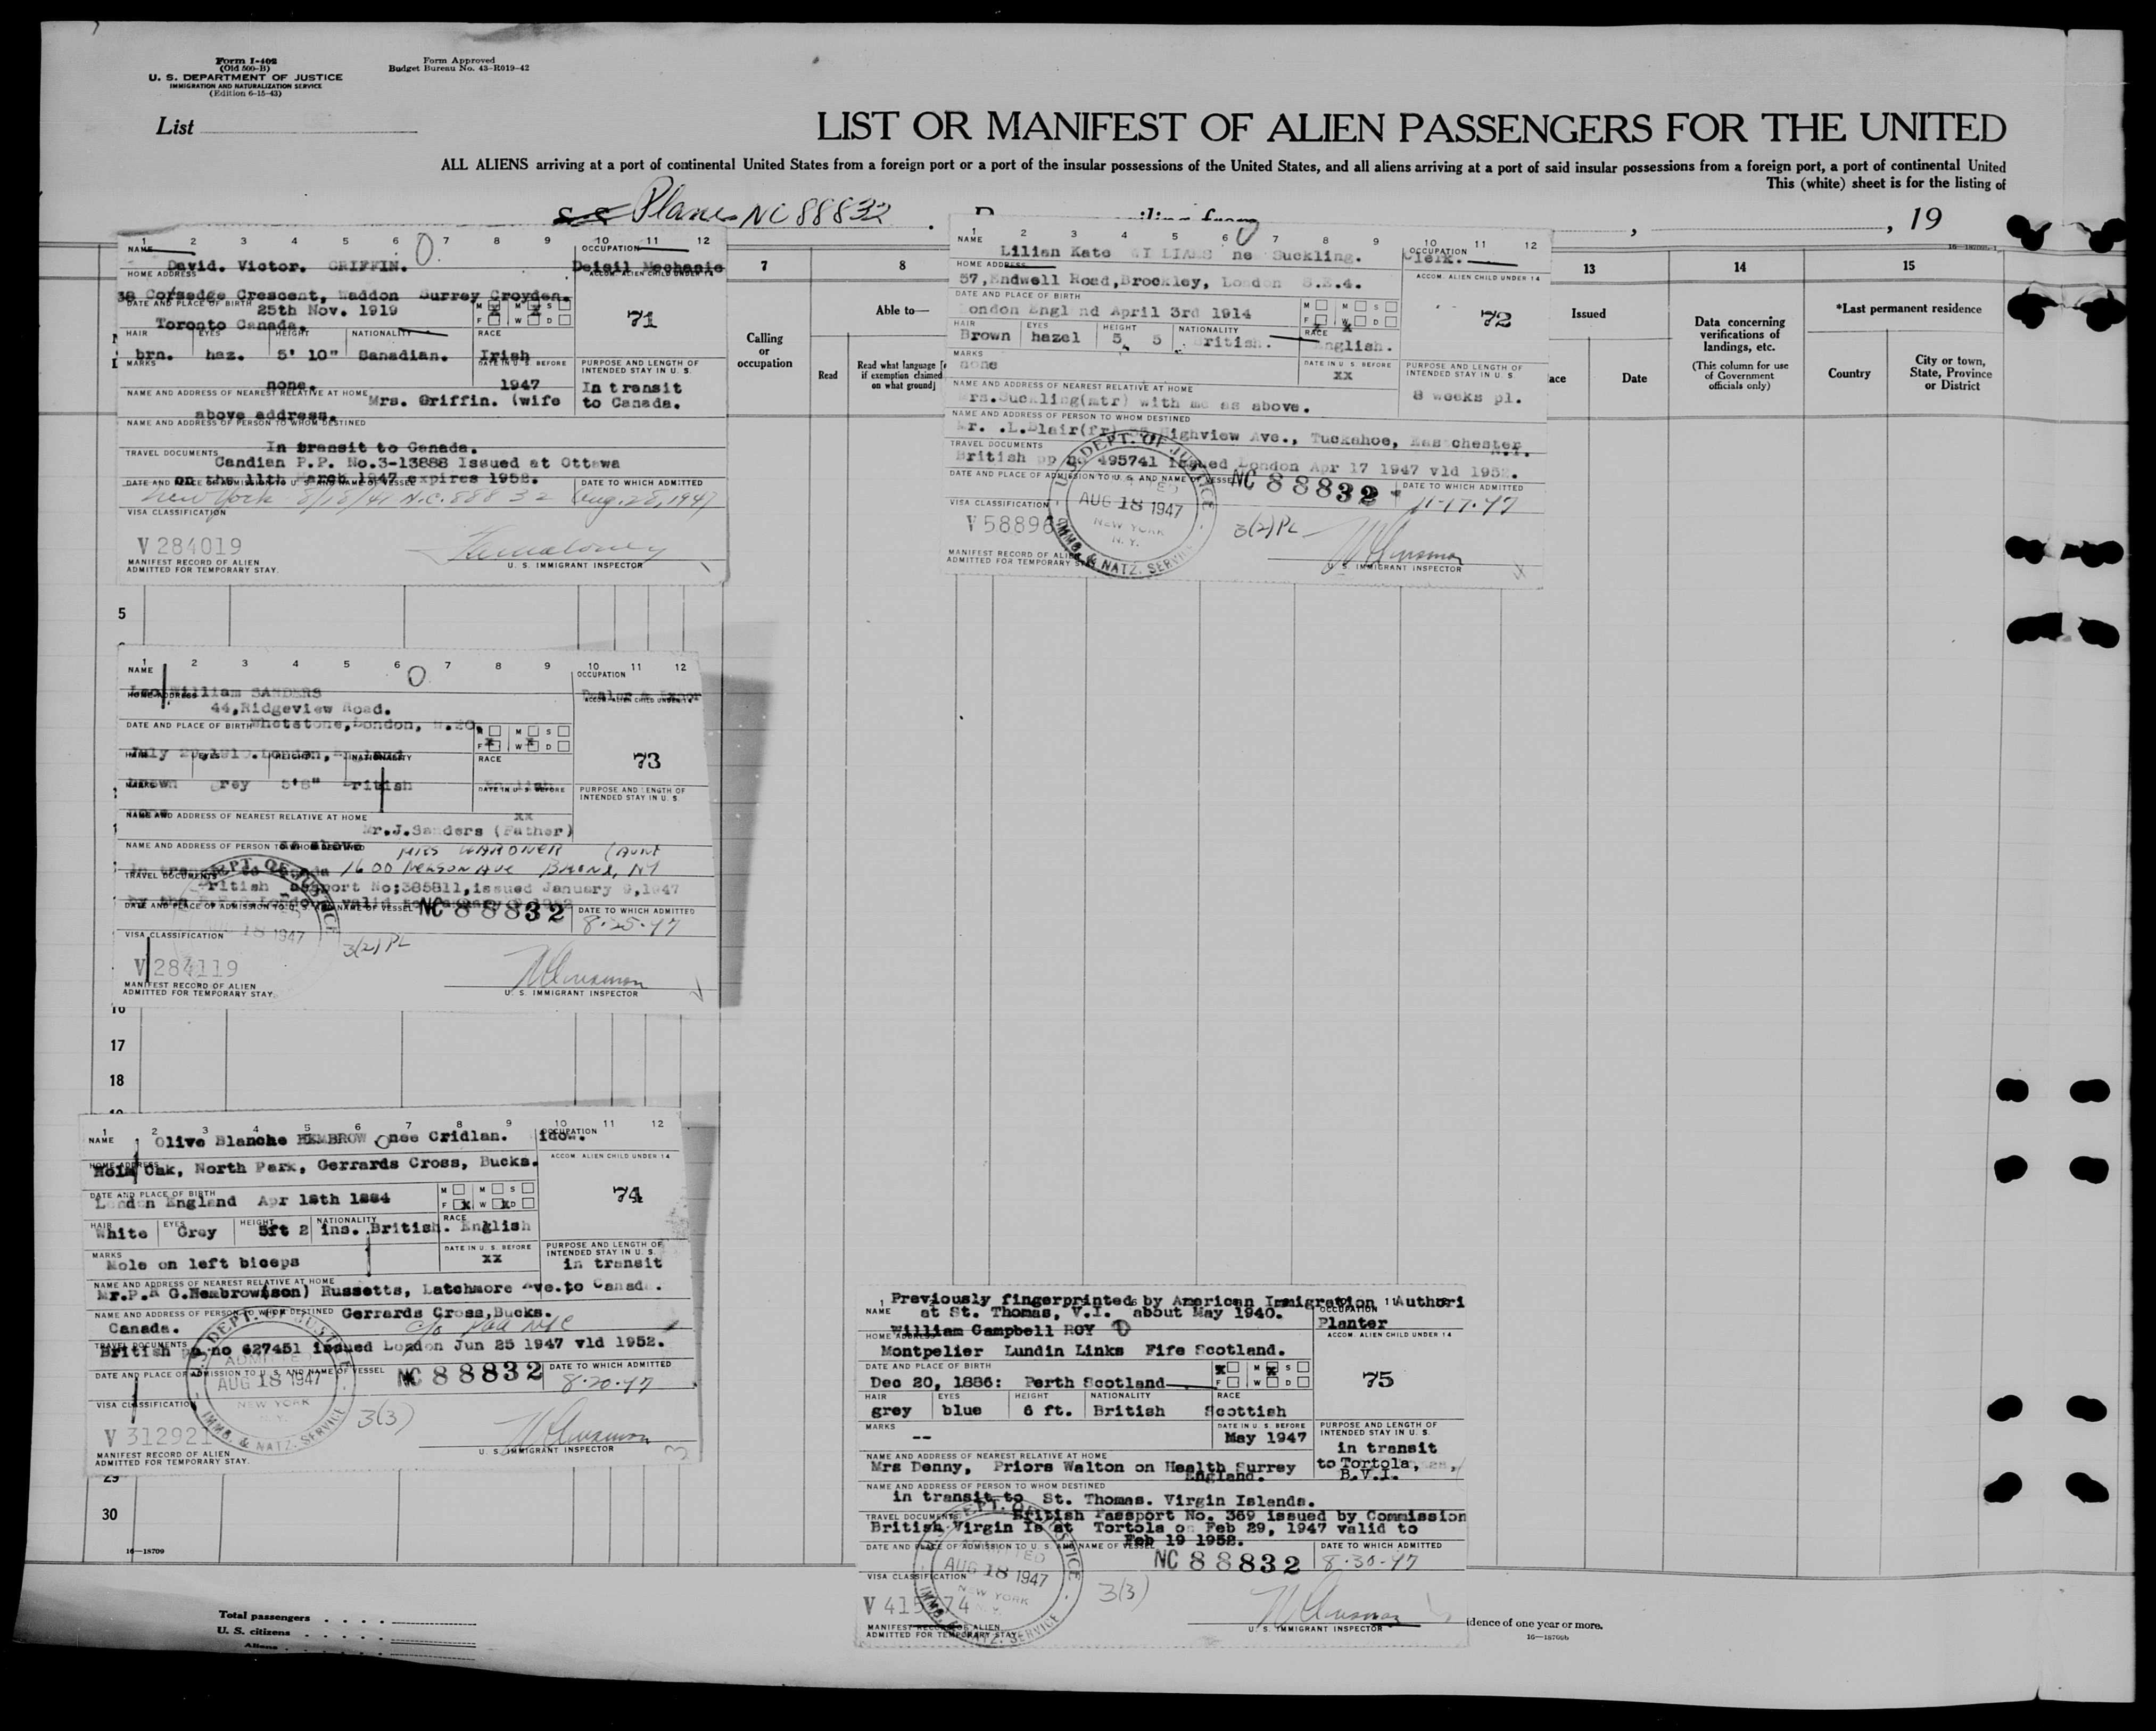 Form I-402
(Old 500-B)
U. S. DEPARTMENT OF JUSTICE
IMMIGRATION AND NATURALIZATION SERVICE
(Edition 6-15-43)
Form Approved
Budget Bureau No. 43-R019-42
List
LIST OR MANIFEST OF ALIEN PASSENGERS FOR THE UNITED
ALL ALIENS arriving at a port of continental United States from a foreign port or a port of the insular possessions of the United States, and all aliens arriving at a port of said insular possessions from a foreign port, a port of continental United
This (white) sheet is for the listing of
S.S. Plane NC 88832
sailing from , , 19
1 2 3 4 5 6 7 8 9 10 11 12
NAME OCCUPATION
David. Victor. GRIFFIN. Deisil Mechanic
HOME ADDRESS ACCOM. ALIEN CHILD UNDER 14
Crescent, Waddon Surrey Croyden.
DATE AND PLACE OF BIRTH 25th Nov. 1919 M M S
Toronto Canada. F W D
71
HAIR EYES HEIGHT NATIONALITY RACE
brn. haz. 5' 10" Canadian. Irish
MARKS DATE IN U. S. BEFORE PURPOSE AND LENGTH OF INTENDED STAY IN U. S.
none. 1947 In transit to Canada.
NAME AND ADDRESS OF NEAREST RELATIVE AT HOME Mrs. Griffin. (wife
above address.
NAME AND ADDRESS OF PERSON TO WHOM DESTINED
In transit to Canada.
TRAVEL DOCUMENTS Candian P.P. No.3-13888 Issued at Ottawa
on the 11th March 1947 expires 1952.
DATE AND PLACE OF ADMISSION TO U. S. AND NAME OF VESSEL DATE TO WHICH ADMITTED
New York N.C. 88832 Aug. 28, 1947
VISA CLASSIFICATION
V 284019
MANIFEST RECORD OF ALIEN
ADMITTED FOR TEMPORARY STAY.
U. S. IMMIGRANT INSPECTOR
7
Calling
or
occupation
8
Able to—
Read
Read what language
if exemption claimed
on what ground
1 2 3 4 5 6 7 8 9 10 11 12
NAME OCCUPATION
Lilian Kate Suckling. Clerk.
HOME ADDRESS ACCOM. ALIEN CHILD UNDER 14
57,Endwell Road,Brockley, London S.E.4.
DATE AND PLACE OF BIRTH M M S
London England April 3rd 1914 F W D
72
HAIR EYES HEIGHT NATIONALITY RACE
Brown hazel 5 5 British. English.
MARKS DATE IN U. S. BEFORE PURPOSE AND LENGTH OF INTENDED STAY IN U. S.
none xx 8 weeks pl.
NAME AND ADDRESS OF NEAREST RELATIVE AT HOME
Mrs.Suckling(mtr) with me as above.
NAME AND ADDRESS OF PERSON TO WHOM DESTINED
Mr. .L.Blair(fr) Highview Ave., Tuckahoe, Eastchester N.Y.
TRAVEL DOCUMENTS
British pp no 495741 issued London Apr 17 1947 vld 1952.
DATE AND PLACE OF ADMISSION TO U. S. AND NAME OF VESSEL NC 88832 DATE TO WHICH ADMITTED
11-17-47
U.S. DEPT. OF JUSTICE
ADMITTED
AUG 18 1947
NEW YORK
N. Y.
IMMG. & NATZ. SERVICE
VISA CLASSIFICATION
3(2) PL
MANIFEST RECORD OF ALIEN
ADMITTED FOR TEMPORARY
U. S. IMMIGRANT INSPECTOR
13
Issued
Date
14
Data concerning
verifications of
landings, etc.
(This column for use
of Government
officials only)
15
*Last permanent residence
Country
City or town,
State, Province
or District
5
1 2 3 4 5 6 7 8 9 10 11 12
NAME OCCUPATION
William SANDERS
HOME ADDRESS ACCOM. ALIEN CHILD UNDER 14
44,Ridgeview Road.
DATE AND PLACE OF BIRTH Whetstone,London, N.20.
M M S
F W D
London, England
73
HAIR EYES HEIGHT NATIONALITY RACE
brown grey 5'8" British English
MARKS DATE IN U. S. BEFORE PURPOSE AND LENGTH OF INTENDED STAY IN U. S.
none xx
NAME AND ADDRESS OF NEAREST RELATIVE AT HOME
Mr.J.Sanders (Father)
as above
NAME AND ADDRESS OF PERSON TO WHOM DESTINED MRS (AUNT
In transit to Canada 1600 NELSON AVE BRONX, NY
TRAVEL DOCUMENTS
British passport No;385811,issued January 9,1947
DATE AND PLACE OF ADMISSION TO U. S. AND NAME OF VESSEL NC 88832 DATE TO WHICH ADMITTED
8-25-47
DEPT. OF JUSTICE
18 1947
VISA CLASSIFICATION
3(2) PL
V 284119
MANIFEST RECORD OF ALIEN
ADMITTED FOR TEMPORARY STAY.
U. S. IMMIGRANT INSPECTOR
16
17
18
1 2 3 4 5 6 7 8 9 10 11 12
NAME Olive Blanche HEMBROW nee Cridlan. OCCUPATION
HOME ADDRESS Oak, North Park, Gerrards Cross, Bucks. ACCOM. ALIEN CHILD UNDER 14
DATE AND PLACE OF BIRTH M M S
London England Apr 18th 1884 F W D
74
HAIR EYES HEIGHT NATIONALITY RACE
White Grey 5ft 2 ins. British. English
MARKS DATE IN U. S. BEFORE PURPOSE AND LENGTH OF INTENDED STAY IN U. S.
Mole on left biceps xx in transit
NAME AND ADDRESS OF NEAREST RELATIVE AT HOME
Mr.P. G.Hembrow(son) Russetts, Latchmore Ave.to Canada.
NAME AND ADDRESS OF PERSON TO WHOM DESTINED Gerrards Cross,Bucks.
Canada. c/o PAA NYC
TRAVEL DOCUMENTS
British pp no 627451 issued London Jun 25 1947 vld 1952.
DATE AND PLACE OF ADMISSION TO U. S. AND NAME OF VESSEL NC 88832 DATE TO WHICH ADMITTED
8-20-47
DEPT. OF JUSTICE
ADMITTED
AUG 18 1947
NEW YORK
N. Y.
IMMG. & NATZ. SERVICE
VISA CLASSIFICATION
3(3)
V 312921
MANIFEST RECORD OF ALIEN
ADMITTED FOR TEMPORARY STAY.
U. S. IMMIGRANT INSPECTOR
29
30
16—18709
Previously fingerprinted by American Immigration Authori
at St. Thomas, V.I. about May 1940.
NAME OCCUPATION
William Campbell ROY Planter
HOME ADDRESS ACCOM. ALIEN CHILD UNDER 14
Montpelier Lundin Links Fife Scotland.
DATE AND PLACE OF BIRTH M M S
Dec 20, 1886: Perth Scotland F W D
75
HAIR EYES HEIGHT NATIONALITY RACE
grey blue 6 ft. British Scottish
MARKS DATE IN U. S. BEFORE PURPOSE AND LENGTH OF INTENDED STAY IN U. S.
-- May 1947 in transit
NAME AND ADDRESS OF NEAREST RELATIVE AT HOME to Tortola,
Mrs Denny, Priors Walton on Health Surrey B.V.I.
England.
NAME AND ADDRESS OF PERSON TO WHOM DESTINED
in transit to St. Thomas. Virgin Islands.
TRAVEL DOCUMENTS British Passport No. 369 issued by Commission
British Virgin Is at Tortola on Feb 29, 1947 valid to
Feb 19 1952.
DATE AND PLACE OF ADMISSION TO U. S. AND NAME OF VESSEL DATE TO WHICH ADMITTED
NC 88832 8-30-47
DEPT. OF JUSTICE
ADMITTED
AUG 18 1947
NEW YORK
N. Y.
IMMG. & NATZ. SERVICE
VISA CLASSIFICATION
3(3)
MANIFEST RECORD OF ALIEN
ADMITTED FOR TEMPORARY STAY
U. S. IMMIGRANT INSPECTOR
idence of one year or more.
16—18709b
Total passengers
U. S. citizens
Aliens